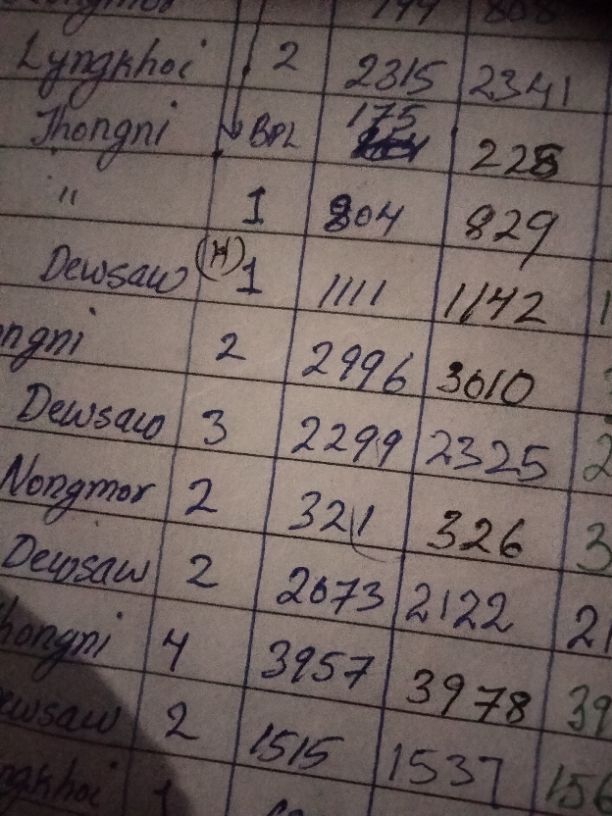 Lyngkhoi 2 2315 2341
Thongni BPL 175 228
" 1 804 829
Dewsaw (H) 1 1111 1142
ngni 2 2996 3010
Dewsaw 3 2299 2325
Nongmor 2 321 326
Dewsaw 2 2073 2122
hongni 4 3957 3978 39
ewsaw 2 1515 1537 156
ngkhoi 1